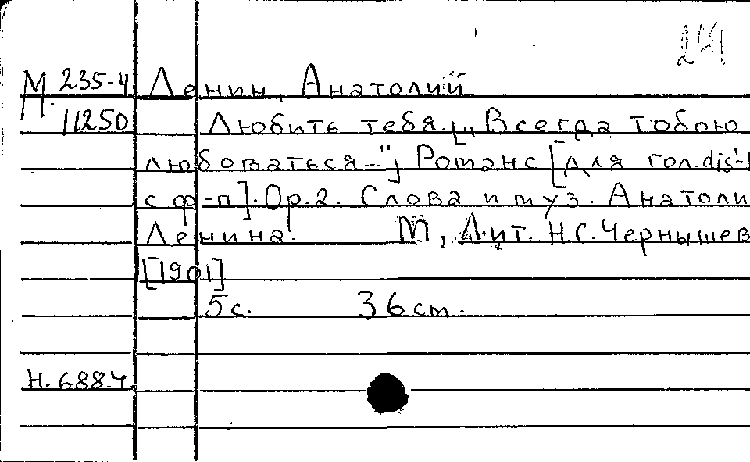 24
М 235-4 Ленин, Анатолий
11250 Любить тебя. [„Всегда тобою
любоваться–"] Романс [для гол. dis'-
с ф-п]. Ор. 2. Слова и муз. Анатоли
Ленина. М, Лит. Н.С. Чернышев
[1901]
5 с. 36 cm.
Н. 688.4